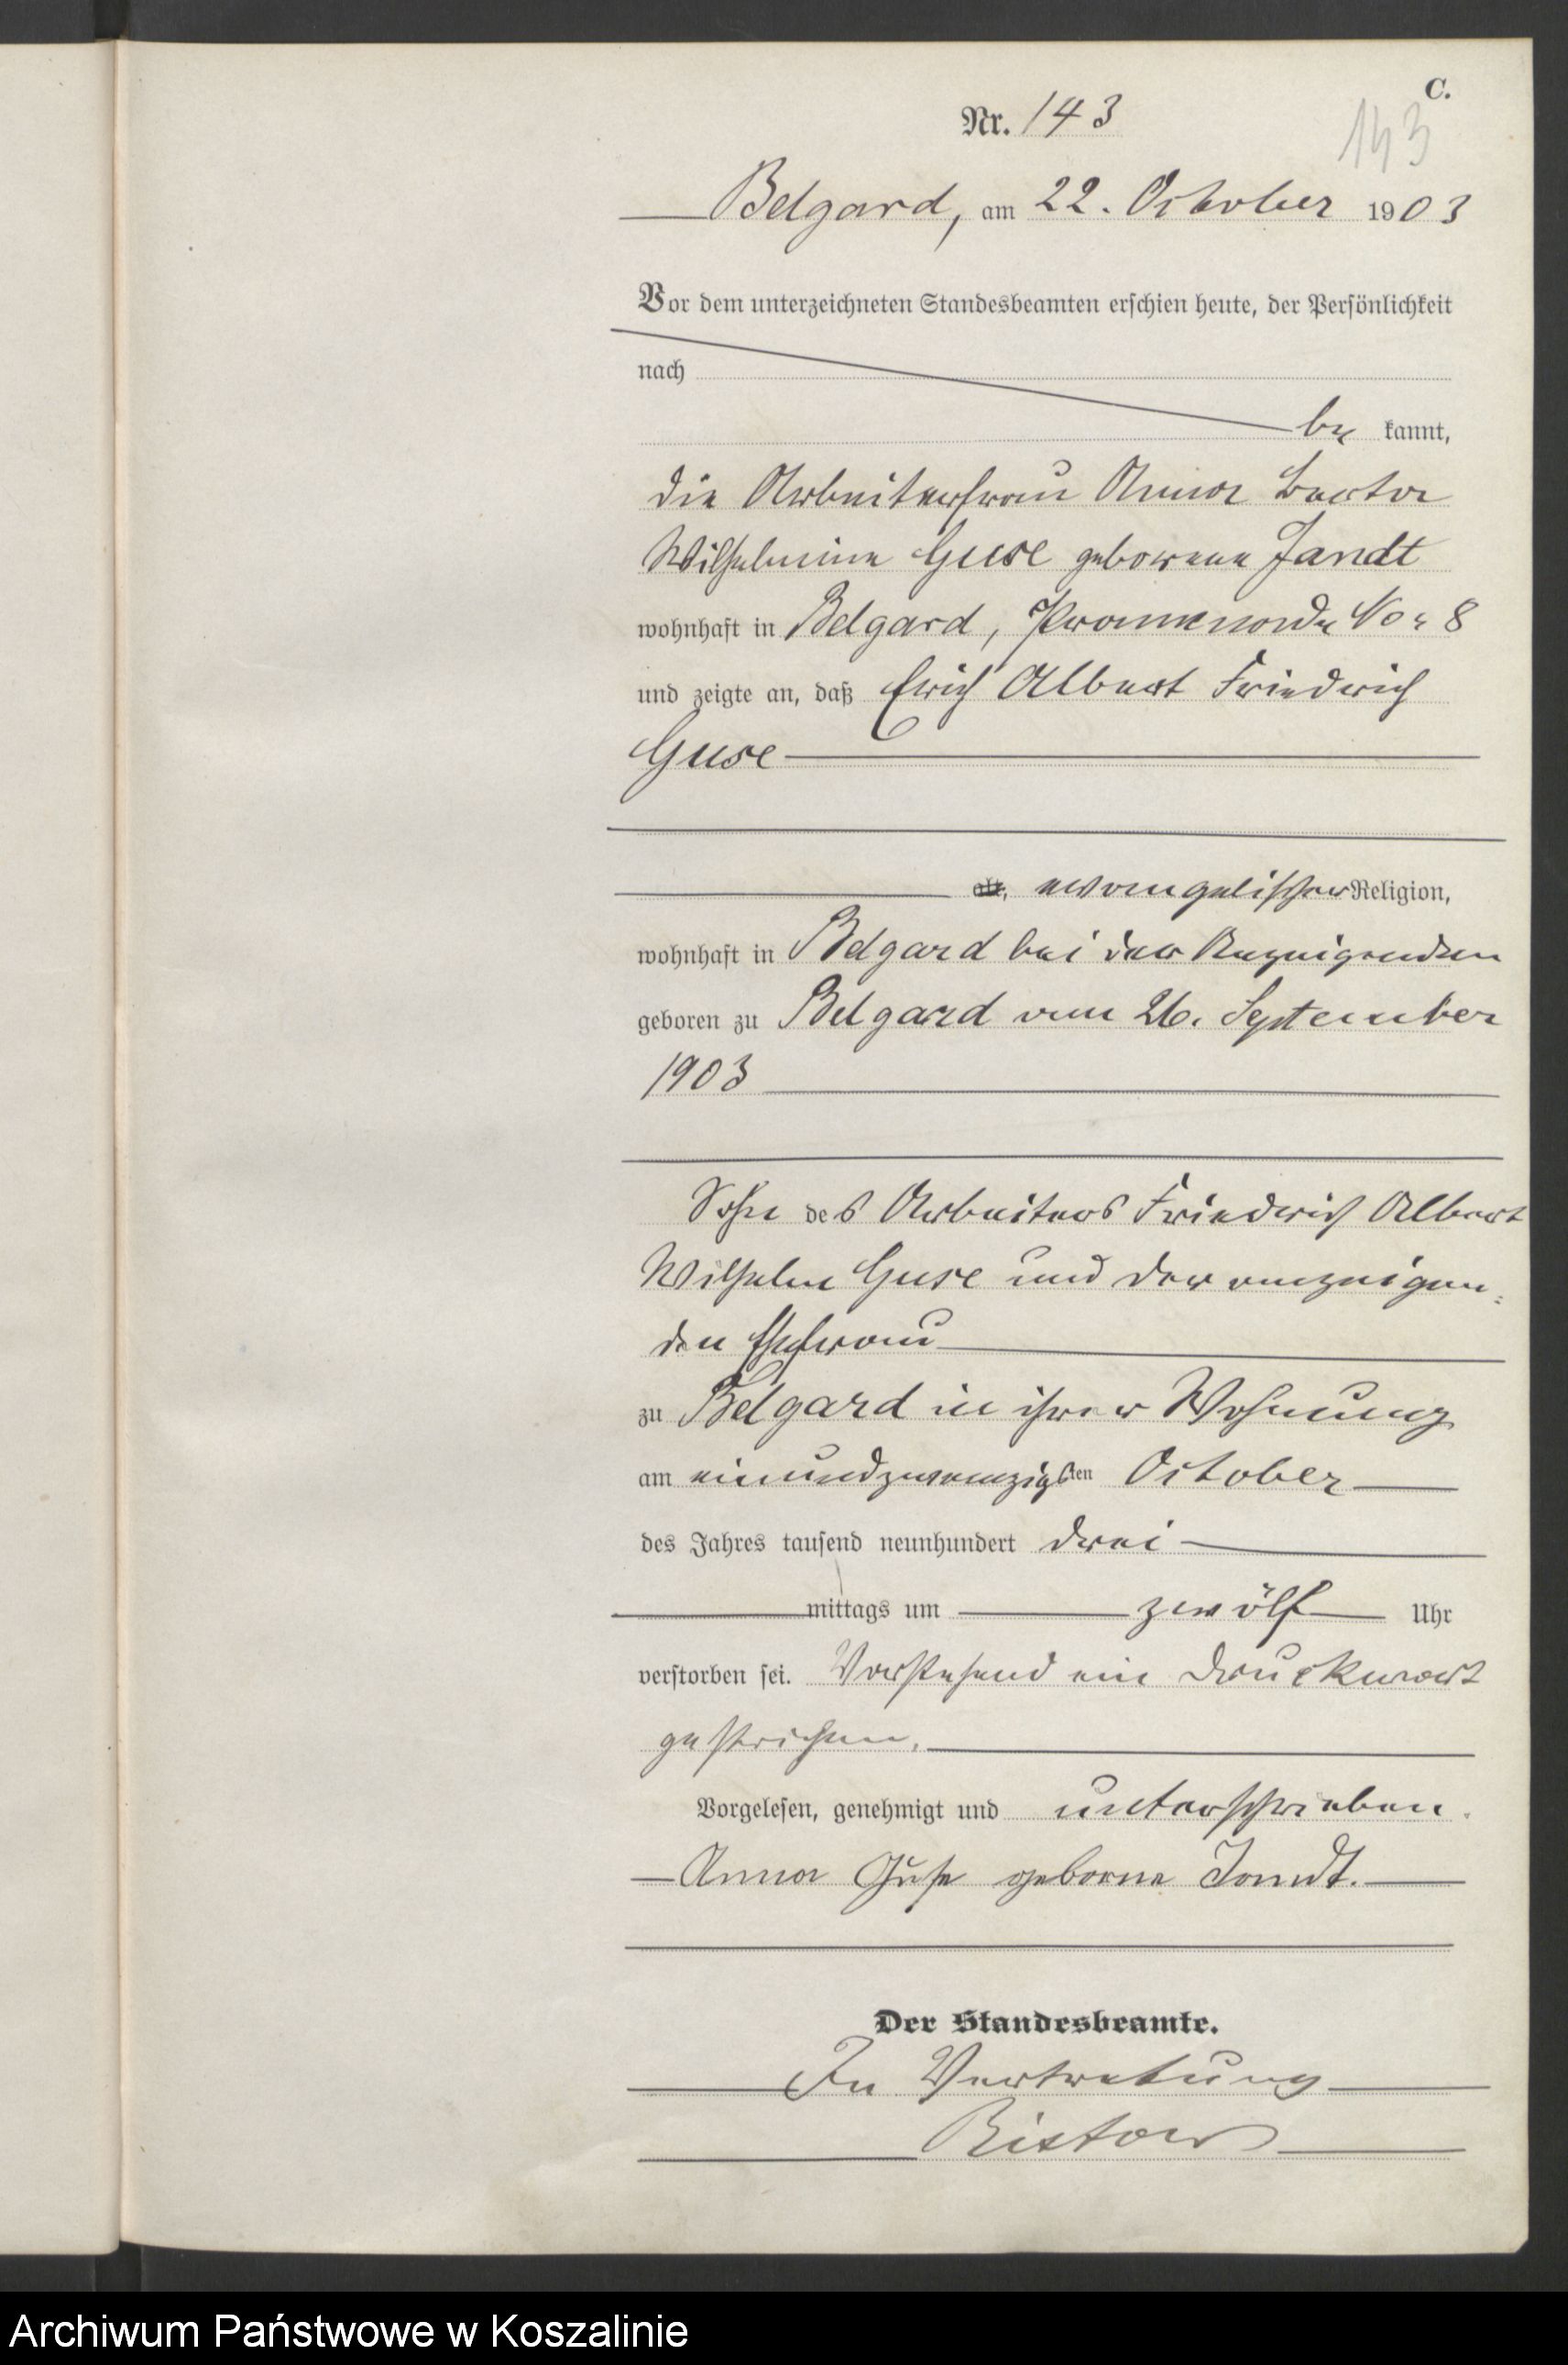 C.
Nr. 143
143
Belgard, am 22. October 1903
Vor dem unterzeichneten Standesbeamten erschien heute, der Persönlichkeit
nach
be kannt,
die Arbeiterfrau Anna Berta
Wilhelmine Guse geborene Jandt
wohnhaft in Belgard, No. 8
und zeigte an, daß Erich Albert Friedrich
Guse
alt, evangelischer Religion,
wohnhaft in Belgard bei der Anzeigenden
geboren zu Belgard am 26. September
1903
Sohn des Arbeiters Friedrich Albert
Wilhelm Guse und der anzeigen-
den Ehefrau
zu Belgard in ihrer Wohnung
am einundzwanzigsten October
des Jahres tausend neunhundert drei
mittags um zwölf Uhr
verstorben sei. Vorstehend ein Druckwort
gestrichen.
Vorgelesen, genehmigt und unterschrieben.
Anna Guse geborne Jandt.
Der Standesbeamte.
In Vertretung
Ristow
Archiwum Państwowe w Koszalinie